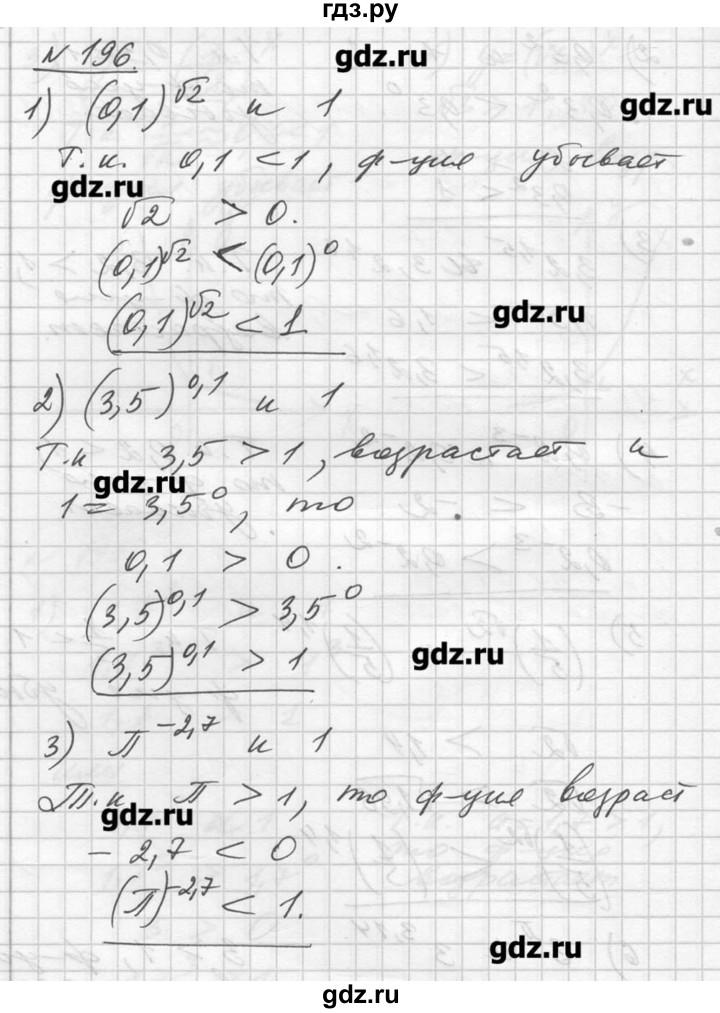 гдз.ру
gdz.ru
N 196
1) (0,1)^√2 и 1
gdz.ru
Т.к. 0,1 < 1, ф-ция убывает
gdz.ru
√2 > 0.
(0,1)^√2 < (0,1)^0
(0,1)^√2 < 1
gdz.ru
2) (3,5)^0,1 и 1
Т.к 3,5 > 1, возрастает и
gdz.ru
1 = 3,5^0, то
0,1 > 0.
(3,5)^0,1 > 3,5^0
(3,5)^0,1 > 1
gdz.ru
3) π^-2,7 и 1
Т.к π > 1, то ф-ция возраст
gdz.ru
-2,7 < 0
(π)^-2,7 < 1.
gdz.ru
gdz.ru